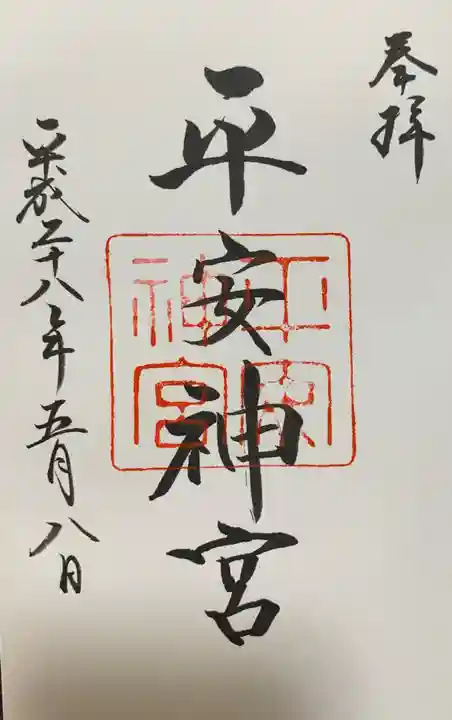 奉拝
平安神宮
平安神宮
平成二十八年五月八日